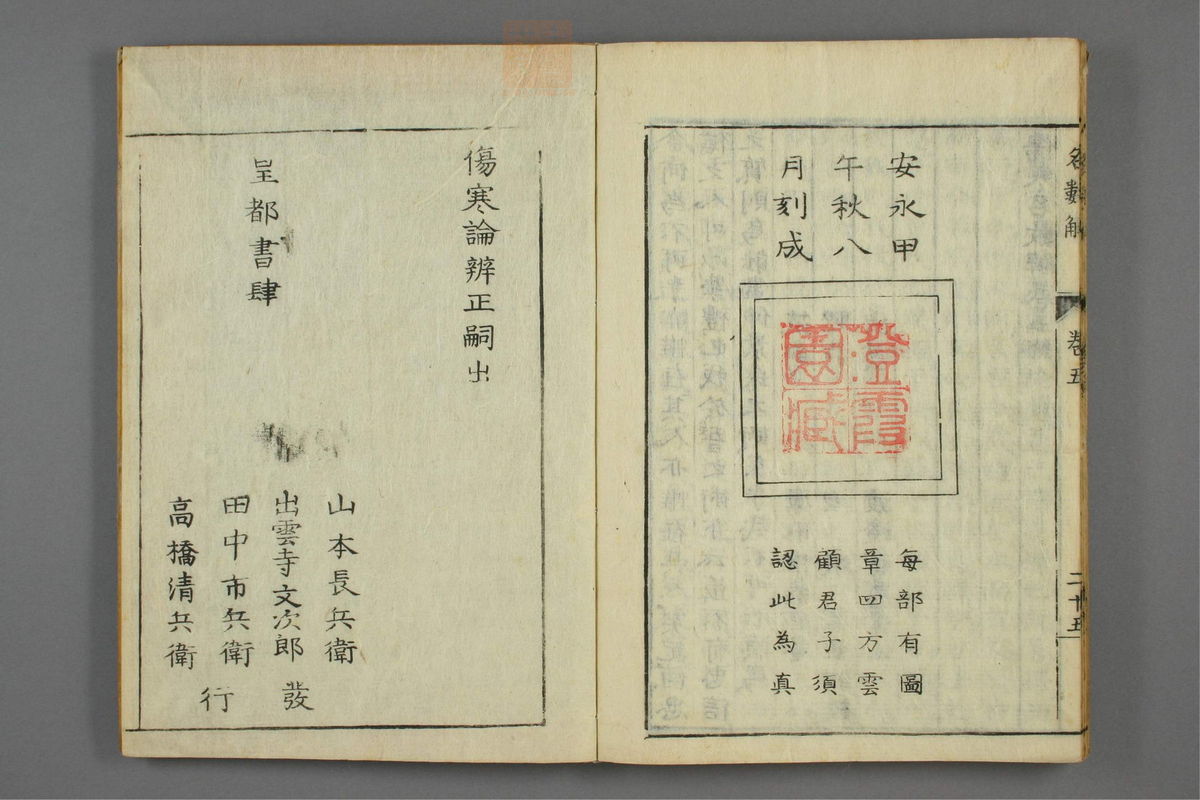 名數解
卷五
二十五
安永甲
午秋八
月刻成
澄霞
園藏
每部有圖
章四方雲
顧君子須
認此為真
傷寒論辨正嗣出
皇都書肆
山本長兵衛
出雲寺文次郎
田中市兵衛
高橋清兵衛
發行